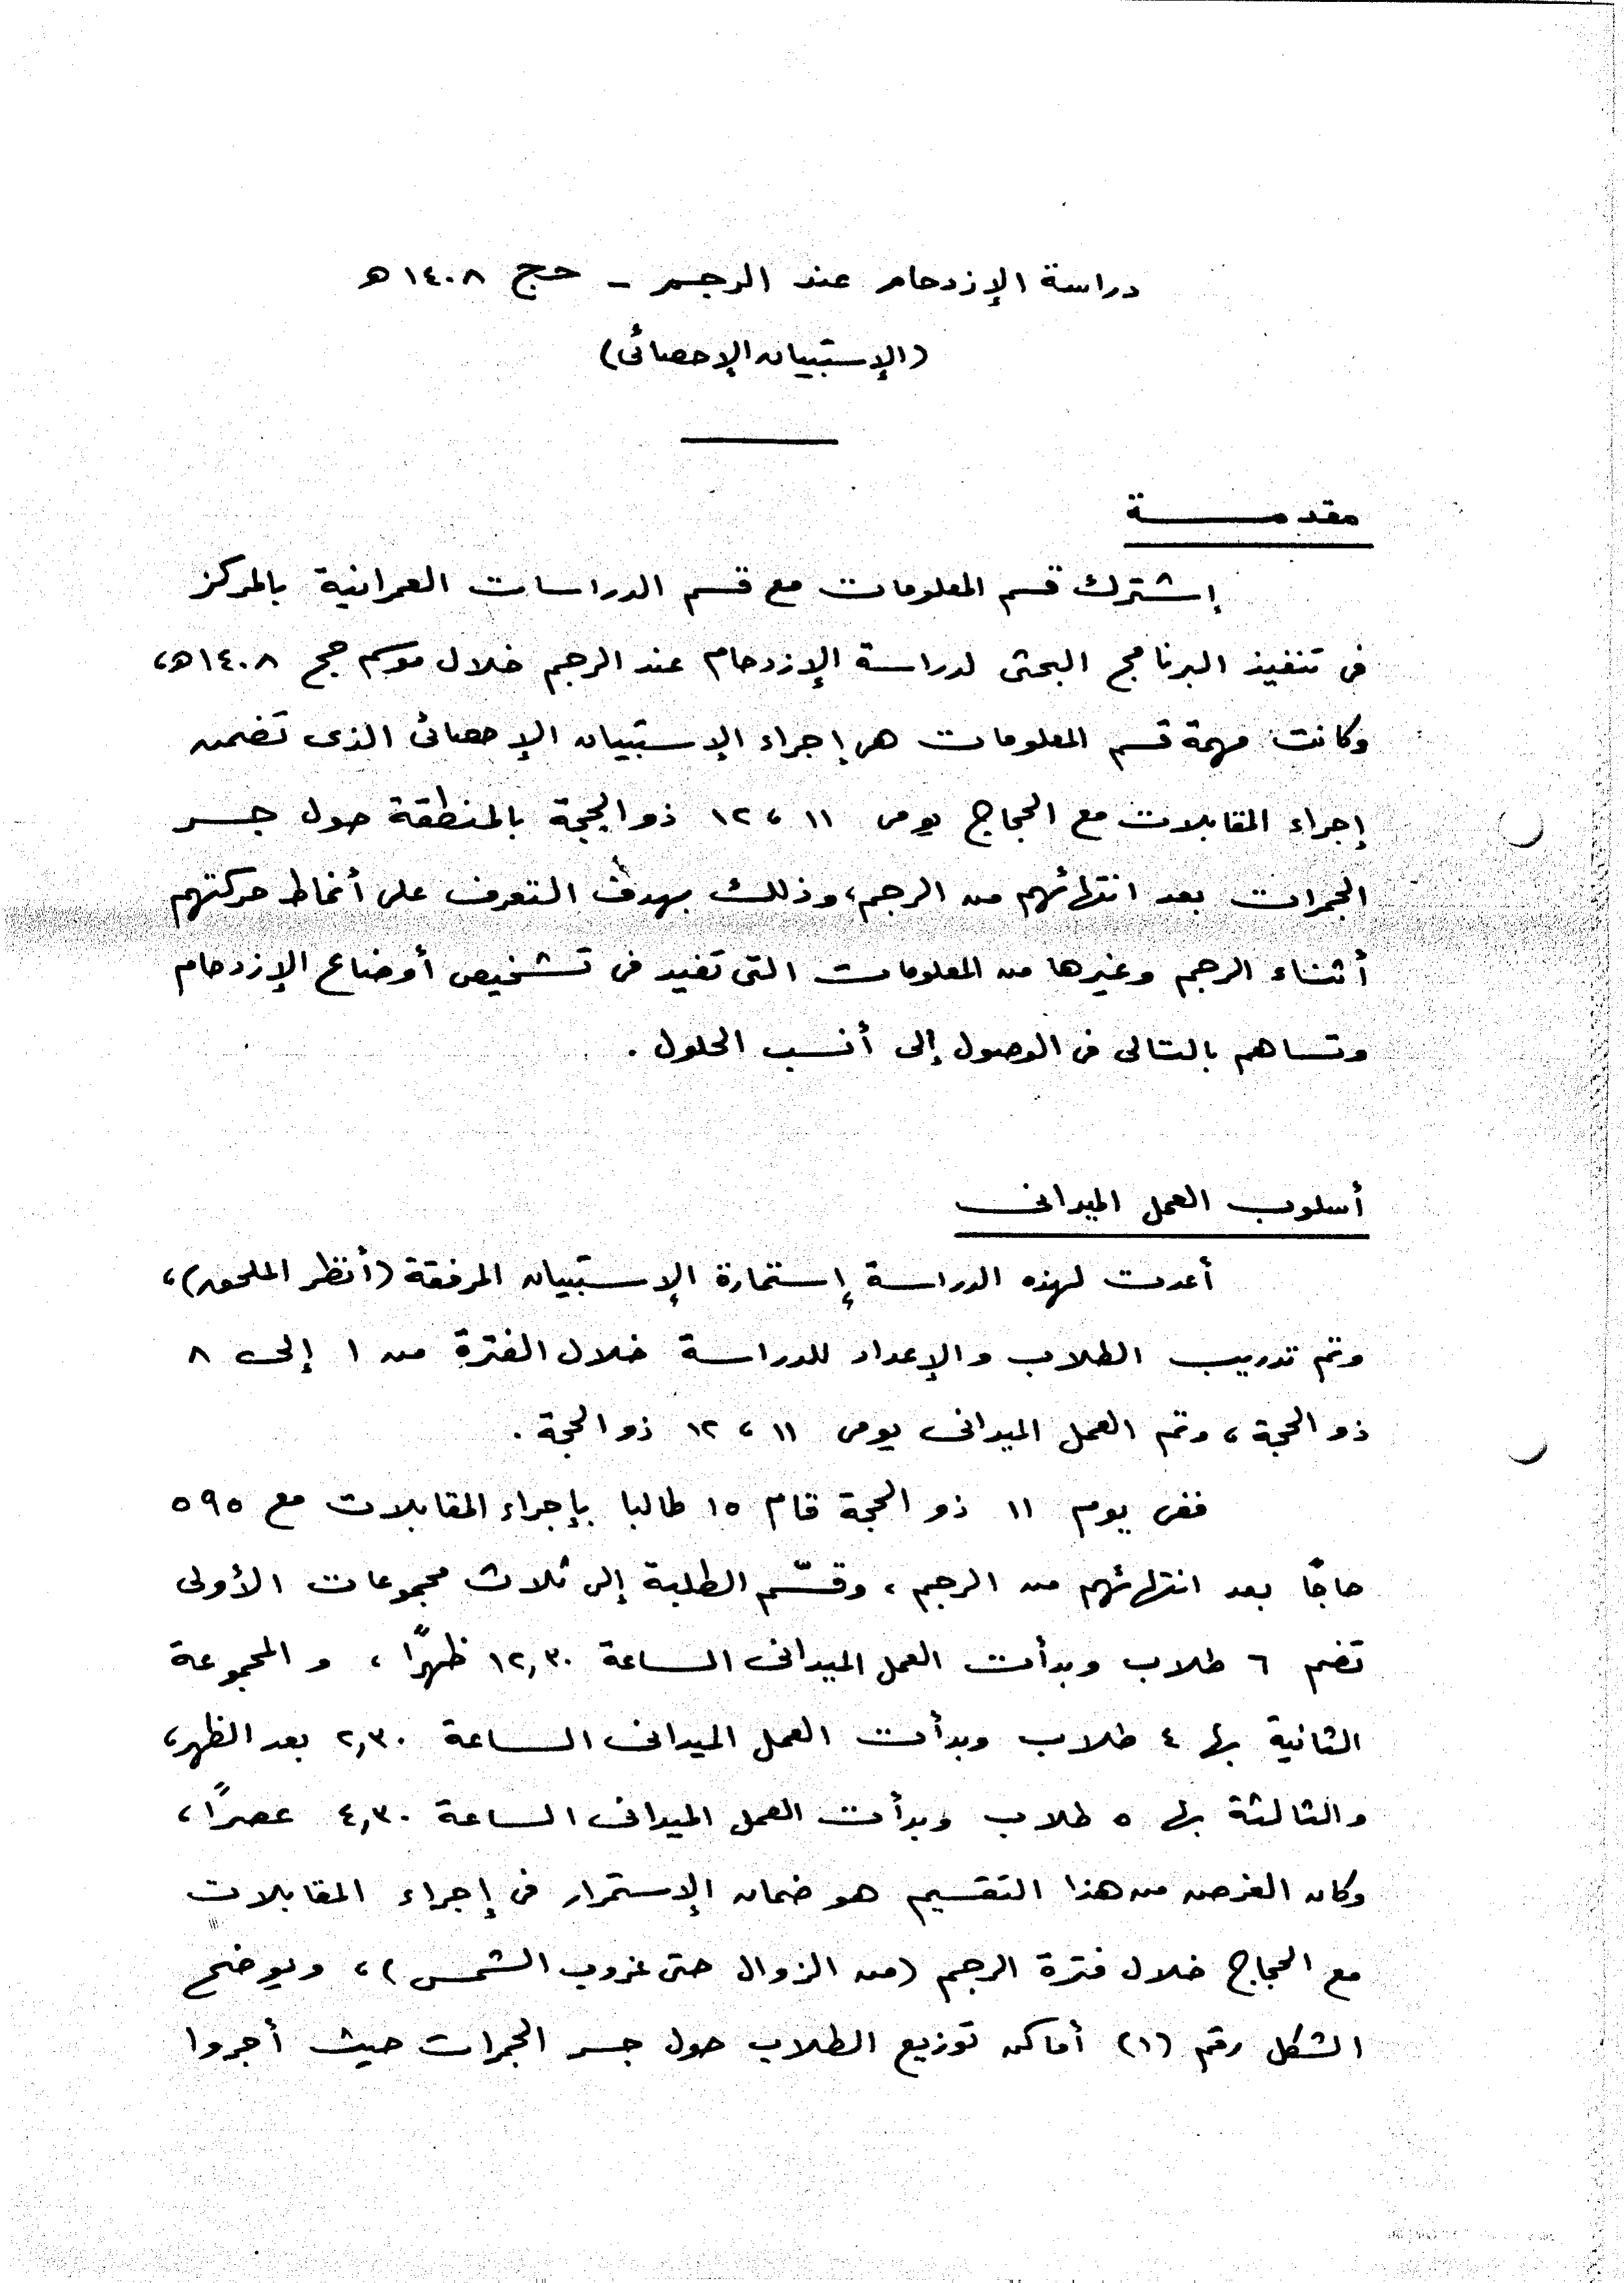 دراسة الإزدحام عند الرجم - حج ١٤٠٨ هـ
(الإستبيان الإحصائى)
مقدمة
إشترك قسم المعلومات مع قسم الدراسات العمرانية بالمركز
فى تنفيذ البرنامج البحثى لدراسة الإزدحام عند الرجم خلال موسم حج ١٤٠٨هـ،
وكانت مهمة قسم المعلومات هى إجراء الإستبيان الإحصائى الذى تضمن
إجراء المقابلات مع الحجاج يومى ١١ ، ١٢ ذو الحجة بالمنطقة حول جسر
الجمرات بعد انتهائهم من الرجم، وذلك بهدف التعرف على أنماط حركتهم
أثناء الرجم وغيرها من المعلومات التى تفيد فى تشخيص أوضاع الإزدحام
وتساهم بالتالى فى الوصول إلى أنسب الحلول .
أسلوب العمل الميدانى
أعدت لهذه الدراسة إستمارة الإستبيان المرفقة (أنظر الملحق)،
وتم تدريب الطلاب والإعداد للدراسة خلال الفترة من ١ إلى ٨
ذو الحجة ، وتم العمل الميدانى يومى ١١ ، ١٢ ذو الحجة .
ففى يوم ١١ ذو الحجة قام ١٥ طالبا بإجراء المقابلات مع ٥٩٥
حاجًا بعد انتهائهم من الرجم ، وقسّم الطلبة إلى ثلاث مجموعات الأولى
تضم ٦ طلاب وبدأت العمل الميدانى الساعة ١٢,٣٠ ظهرًا ، والمجموعة
الثانية بها ٤ طلاب وبدأت العمل الميدانى الساعة ٢,٣٠ بعد الظهر،
والثالثة بها ٥ طلاب وبدأت العمل الميدانى الساعة ٤,٣٠ عصرًا ،
وكان الغرض من هذا التقسيم هو ضمان الإستمرار فى إجراء المقابلات
مع الحجاج خلال فترة الرجم (من الزوال حتى غروب الشمس) ، ويوضح
الشكل رقم (١) أماكن توزيع الطلاب حول جسر الجمرات حيث أجروا